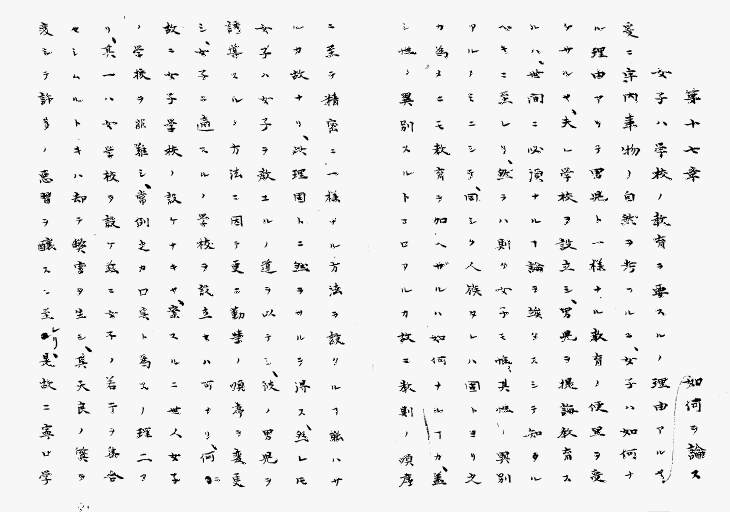 第十七章
女子ハ学校ノ教育ヲ要スルノ理由アルヤ如何ヲ論ス
爰ニ宇内事物ノ自然ヲ考フルニ、女子ハ如何ナ
ル理由アリテ男児ト一様ナル教育ノ便里ヲ受
ケサルヤ、夫レ学校ヲ設立シ、男児ヲ提誨教育ス
ルハ、世間ニ必須ナルヿ論ヲ竢タスシテ知タル
ヘキニ至レリ、然ラハ則リ女子モ惟其性ノ異別
アルノミニシテ、同シク人族タレハ固トヨリ之
カ為メニモ教育ヲ加ヘザルハ如何ナルヿカ、蓋
シ性ノ異別スルトコロアルカ故ニ教則ノ順序
ニ至テ精密ニ一様ナル方法ヲ設クルヿ能ハサ
ルカ故ナリ、此理固トニ然ラサルヲ得ス、然レモ
女子ハ女子ヲ教ユルノ道ヲ以テシ、彼ノ男児ヲ
誘導スルノ方法ニ因テ更ニ勤学ノ順序ヲ変更
シ、女子ニ適スルノ学校ヲ設立セハ可ナリ、何
故ニ女子学校ノ設ケナキヤ、案スルニ世人女子
ノ学校ヲ誹難シ、常例之カ口実ト為スノ理二ア
リ、其一ハ女学校ヲ設ケ為ニ女子ノ若干ヲ集合
セシムルトキハ却テ弊害ヲ生シ、其天良ノ質ヲ
変シテ許多ノ悪習ヲ醸スニ至ル、是故ニ寧ロ学